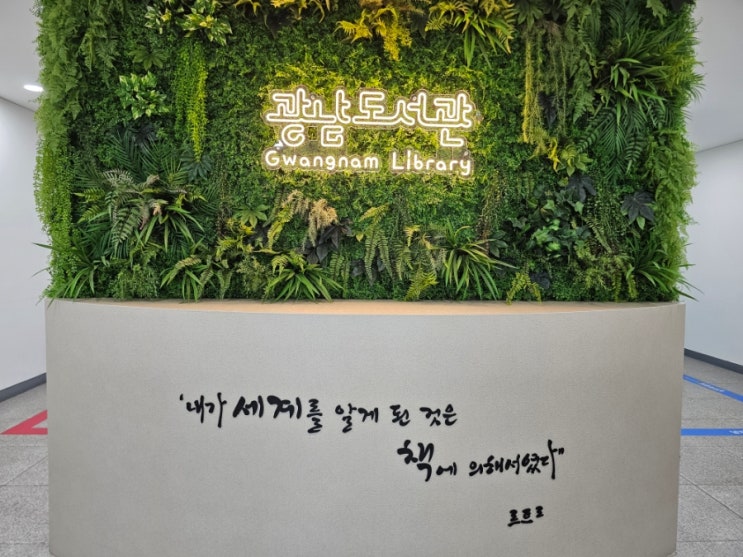 광남도서관
Gwangnam Library
'내가 세계를 알게 된 것은
책에 의해서였다"
르트르